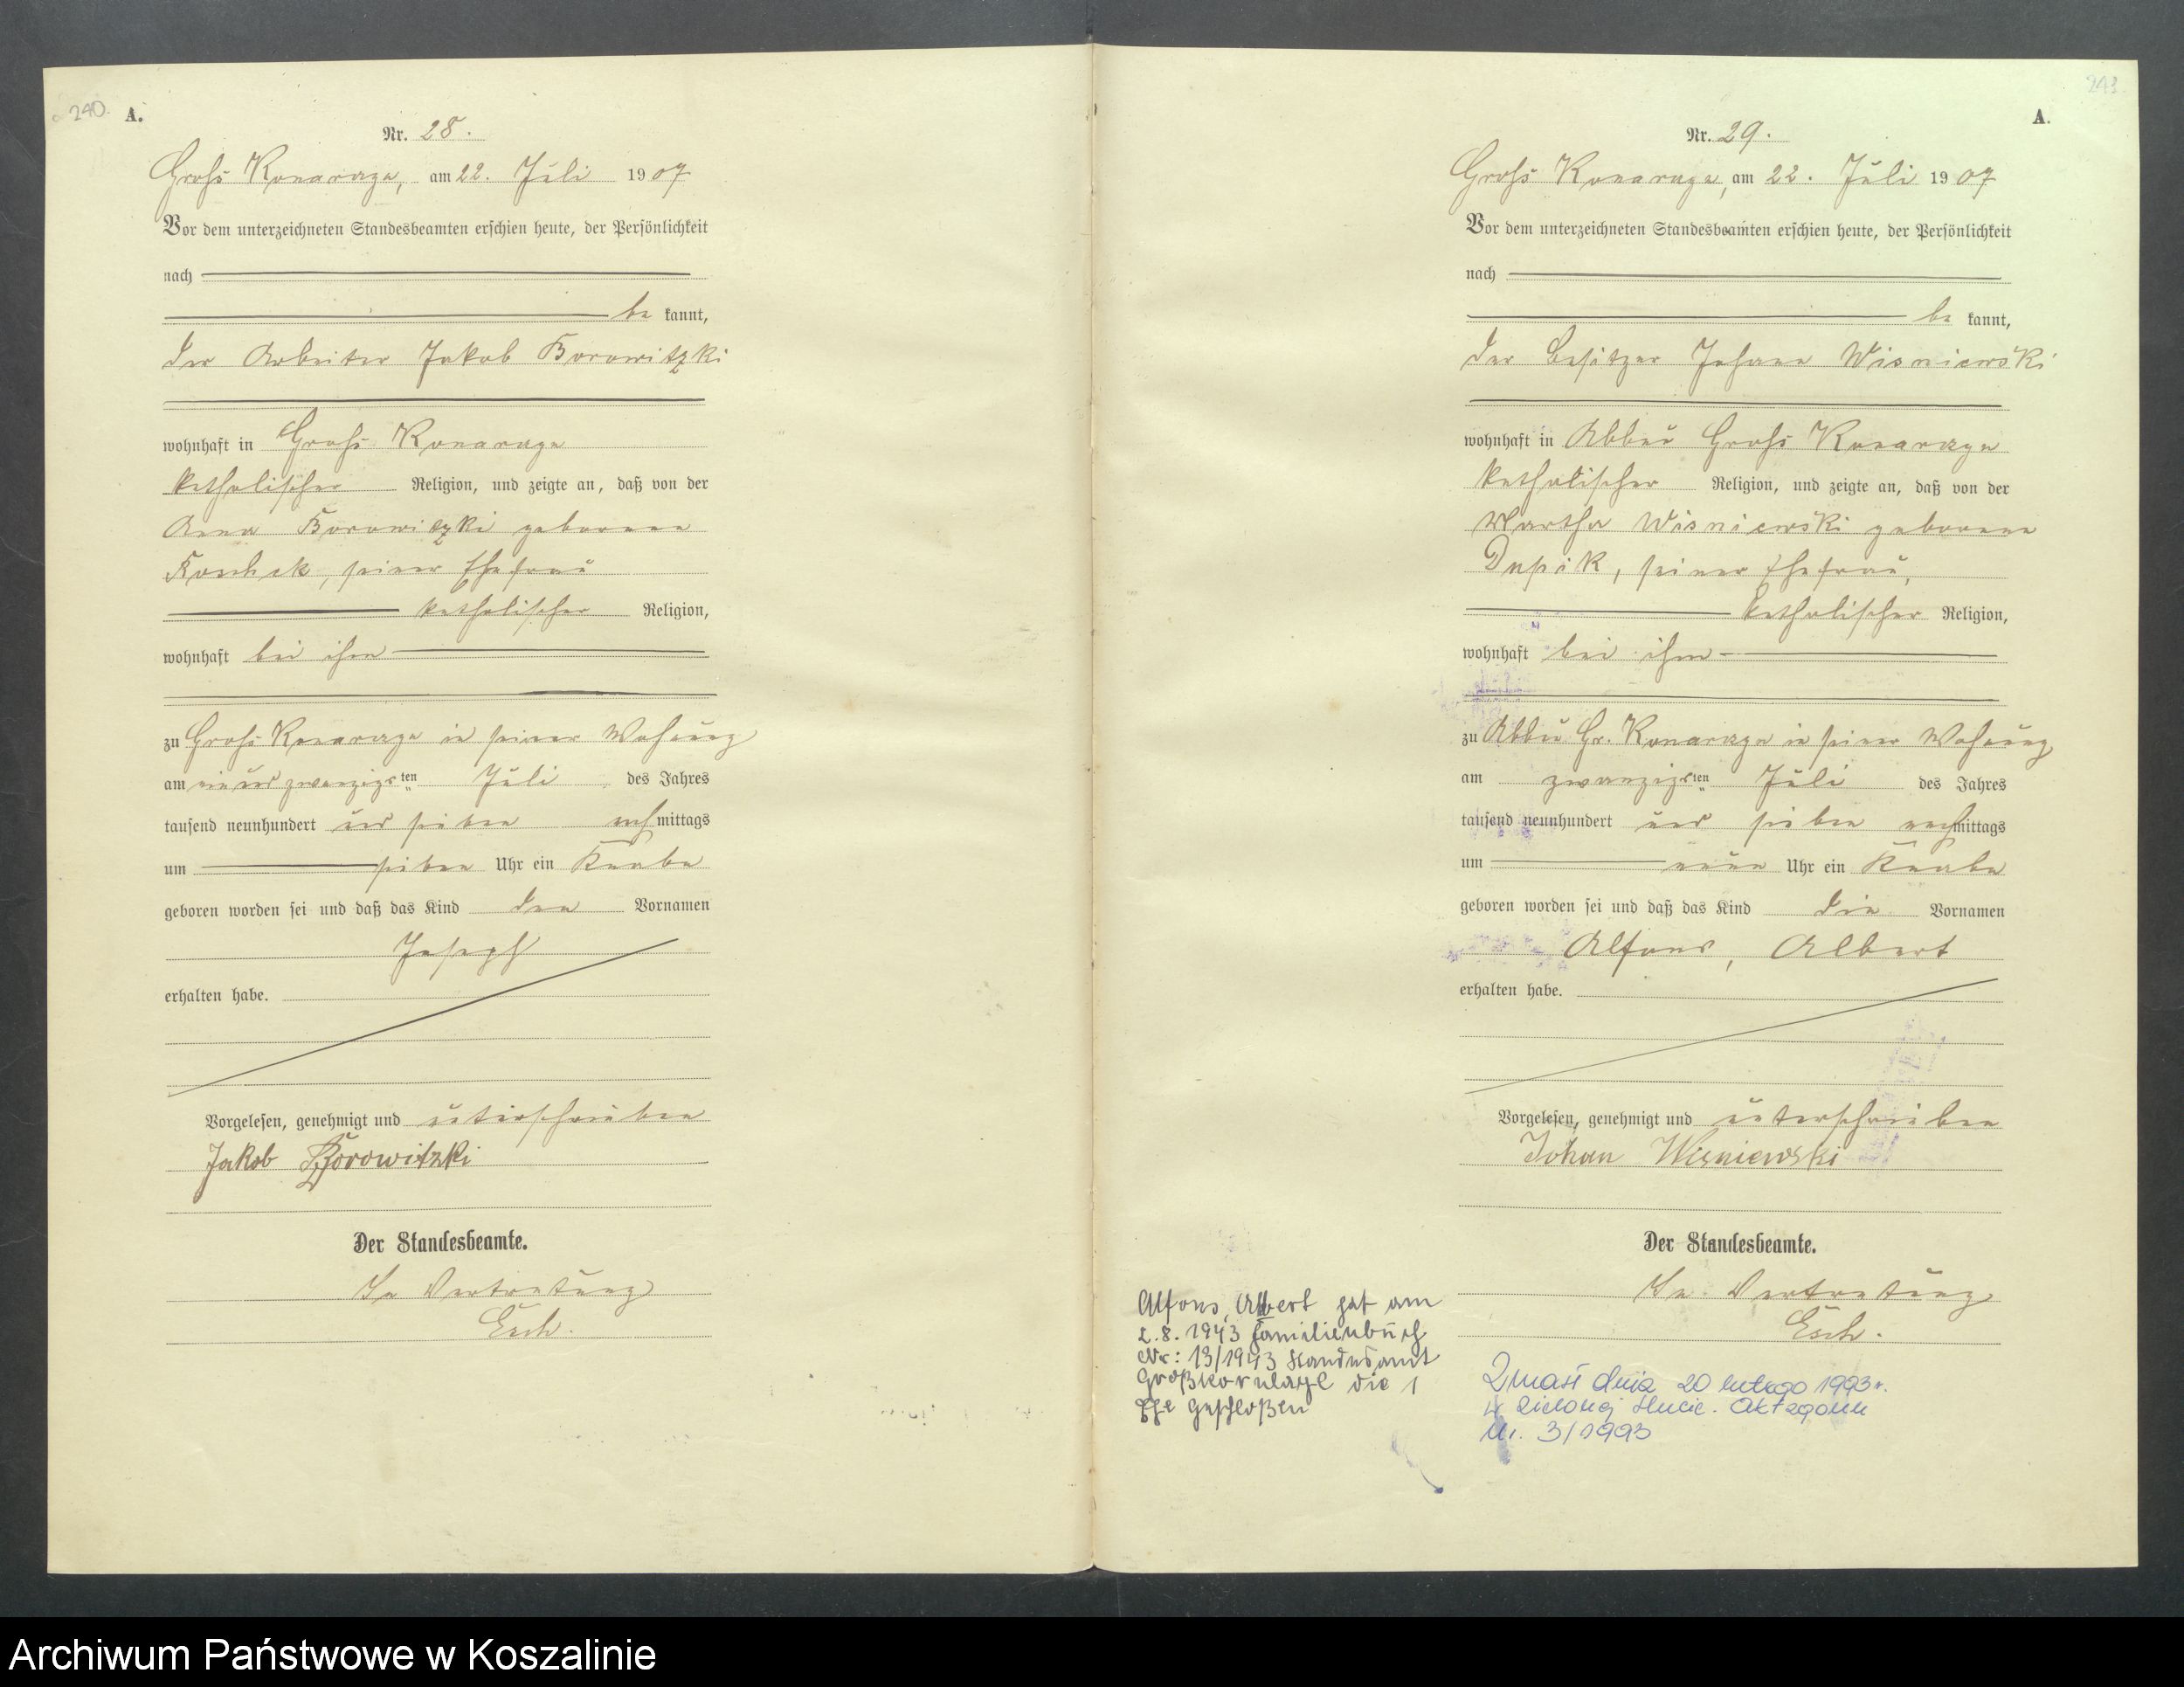 240.
A.
Nr. 28.
Groß Konarzyn, am 22. Juli 1907
Vor dem unterzeichneten Standesbeamten erschien heute, der Persönlichkeit
nach
be kannt,
der Arbeiter Jakob Borowitzki
wohnhaft in Groß Konarzyn
katholischer Religion, und zeigte an, daß von der
Anna Borowiczki geborenen
seiner Ehefrau
katholischer Religion,
wohnhaft bei ihm
zu Groß Konarzyn in seiner Wohnung
am ein und zwanzigsten Juli des Jahres
tausend neunhundert und sieben nachmittags
um sieben Uhr ein Knabe
geboren worden sei und daß das Kind den Vornamen
Joseph
erhalten habe.
Vorgelesen, genehmigt und unterschrieben
Jakob Borowitzki
Der Standesbeamte.
In Vertretung
Esch.
A.
Nr. 29.
Groß Konarzyn, am 22. Juli 1907
Vor dem unterzeichneten Standesbeamten erschien heute, der Persönlichkeit
nach
be kannt,
der Besitzer Johann Wisniewski
wohnhaft in Abbau Groß Konarzyn
katholischer Religion, und zeigte an, daß von der
Martha Wisniewski geborenen
seiner Ehefrau,
katholischer Religion,
wohnhaft bei ihm
zu Abbau Gr. Konarzyn in seiner Wohnung
am zwanzigsten Juli des Jahres
tausend neunhundert und sieben nachmittags
um neun Uhr ein Knabe
geboren worden sei und daß das Kind die Vornamen
Alfons, Albert
erhalten habe.
Vorgelesen, genehmigt und unterschrieben
Johan Wisniewski
Der Standesbeamte.
In Vertretung
Esch.
Alfons, Albert hat am
2.8.1943 Familienbuch
Nr: 13/1943 Standesamt
die 1
Ehe geschloßen
Zmarł dnia 20 lutego 1993 r.
w Zielonej Hucie. Akt zgonu
Nr. 3/1993
Archiwum Państwowe w Koszalinie